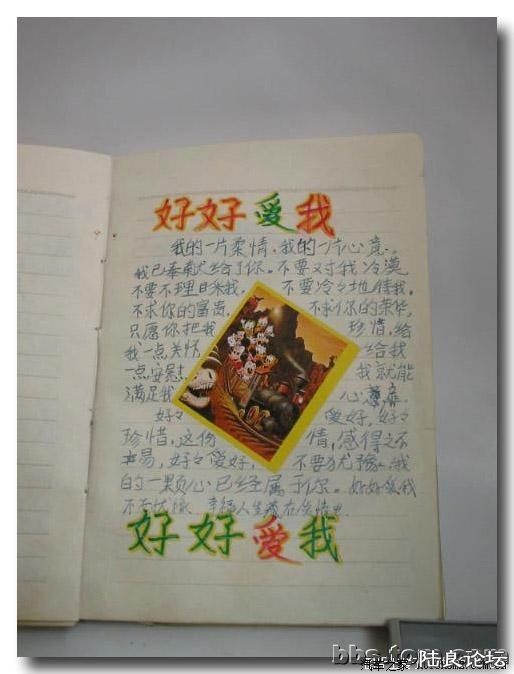 好好爱我
我的一片柔情、我的一片心意、
我已奉献给了你。不要对我冷漠
不要不理目来我, 不要冷々地待我。
不求你的富贵, 不求你的荣华,
只愿你把我 珍惜,给
我一点关怀 给我
一点安慰, 我就能
满足我 心
好々 爱好,好々
珍惜,这份 情,感得之不
易,好々爱好, 不要犹豫,我
的一颗心已经属于你。好好爱我
不 幸福人生藏在
好好爱我
bbs.
汽车之家
陆良论坛